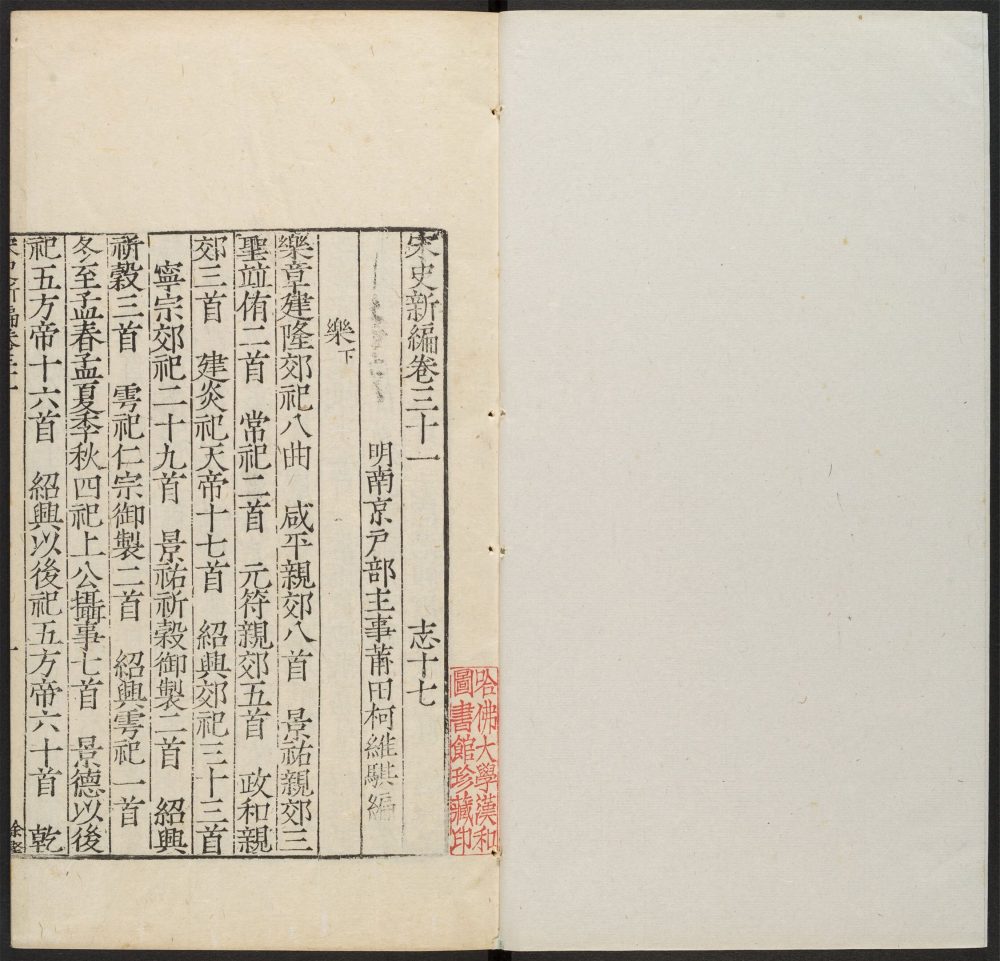 宋史新編卷三十一 志十七
明南京戶部主事莆田柯維騏編
樂下
樂章建隆郊祀八曲 咸平親郊八首 景祐親郊三
聖並侑二首 常祀二首 元符親郊五首 政和親
郊三首 建炎祀天帝十七首 紹興郊祀三十三首
寧宗郊祀二十九首 景祐祈穀御製二首 紹興
祈穀三首 雩祀仁宗御製二首 紹興雩祀一首
冬至孟春孟夏季秋四祀上公攝事七首 景德以後
祀五方帝十六首 紹興以後祀五方帝六十首 乾
宋史新編卷三十一 一
哈佛大學漢和
圖書館珍藏印